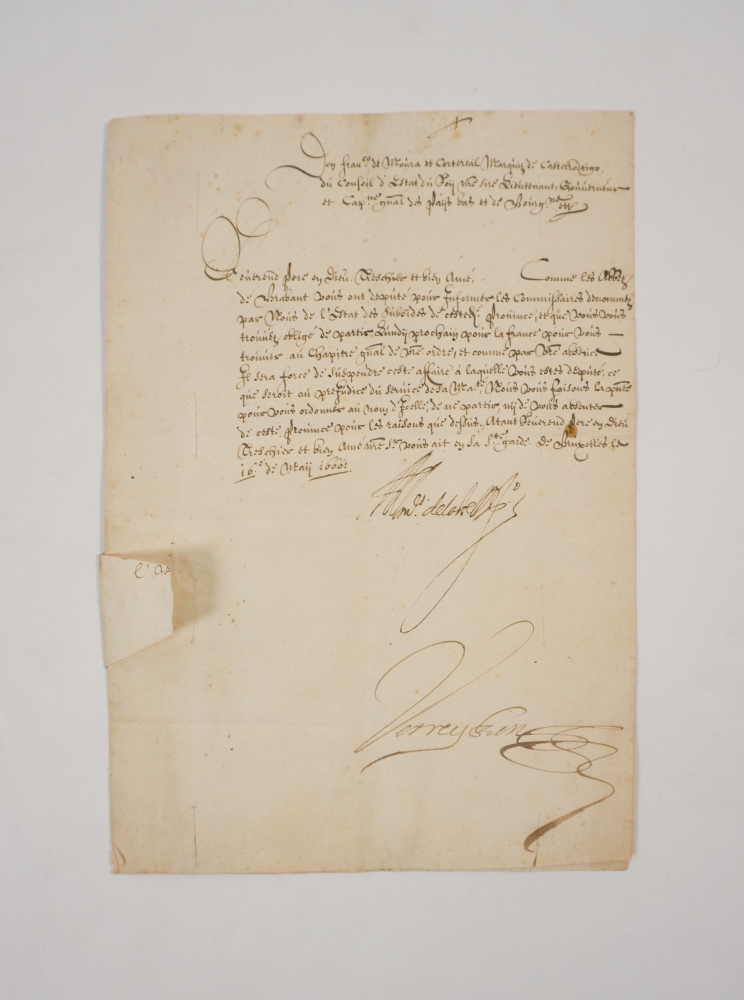 Don Fran.co de Moura et Cortereal Marquis de Castelrodrigo,
du Conseil d'Estat du Roy n͞re sire Lieutenant, Gouverneur
et Cap.ne g͞nal des Pays bas et de Bourg.ne etc.
Reverend Pere en Dieu, Treschier et bien Amé, Comme les Abbez
de Brabant vous ont deputé pour Informer les Commissaires denommez
par Nous de l'Estat des subsides de cestedt.e Province, et que vous vous
trouvez obligé de partir Lundij prochain pour la france pour vous
trouver au Chapitre g͞nal de v͞re ordre, et comme par v͞re absence
Il sera force de suspendre ceste affaire à laquelle vous estes deputé, ce
que seroit au prejudice du service de sa Ma.té Nous vous faisons la p͞nte
pour vous ordonner au nom d'Icelle, de ne partir, nij de vous absenter
de ceste Province pour les raisons que dessus. Atant Reverend Pere en Dieu
Treschier et bien Amé n͞re Sr. vous ait en sa S.te garde. De Bruxelles le
16.e de Maij 1666.
Verreyken
e. a